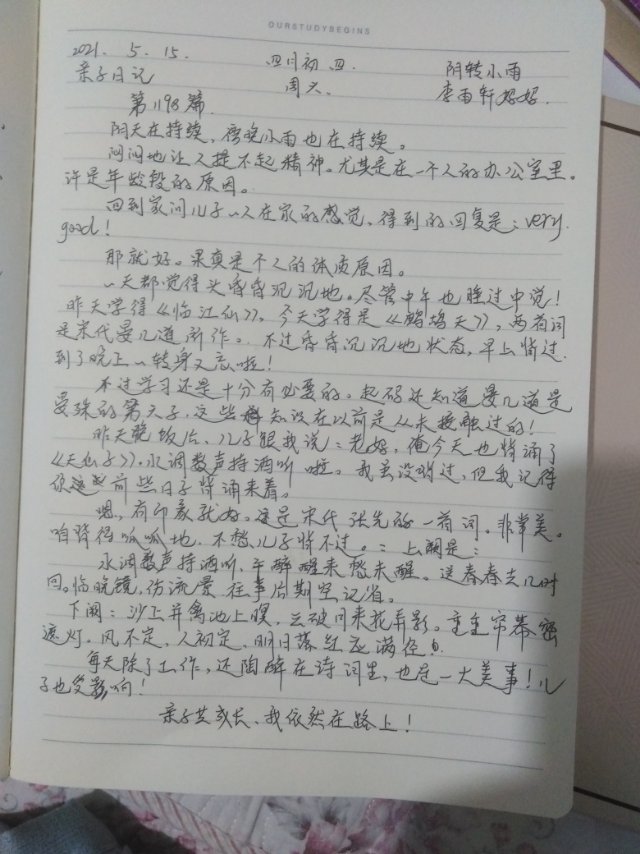 OURSTUDYBEGINS
2021. 5. 15. 四月初四 阴转小雨
亲子日记 周六 李雨轩妈妈.
第1198篇.
阴天在持续,夜晚小雨也在持续。
闷闷地让人提不起精神。尤其是在一个人的办公室里。
许是年龄段的原因。
回到家问儿子一人在家的感觉,得到的回复是:very
good!
那就好。果真是个人的体质原因。
一天都觉得头昏昏沉沉地。尽管中午也睡过中觉!
昨天学得《临江仙》,今天学得是《鹧鸪天》,两首词
是宋代晏几道所作。不过昏昏沉沉地状态,早上背过.
到了晚上一转身又忘啦!
不过学习还是十分有必要的。起码还知道晏几道是
晏殊的第七子,这些知识在以前是从未接触过的!
昨天晚饭后,儿子跟我说:老妈,俺今天也背诵了
《天仙子》,水调数声持酒听啦。我虽没背过,但我记得
你前些日子背诵来着。
嗯,有印象就好。这是宋代张先的一首词。非常美。
咱背得呱呱地,不愁儿子背不过。:上阕是:
水调数声持酒听,午醉醒来愁未醒。送春春去几时
回。临晚镜,伤流景,往事后期空记省。
下阕:沙上并禽池上暝,云破月来花弄影。重重帘幕密
遮灯,风不定,人初定,明日落红应满径。
每天除了工作,还陶醉在诗词里,也是一大美事!儿
子也受影响!
亲子共成长、我依然在路上!